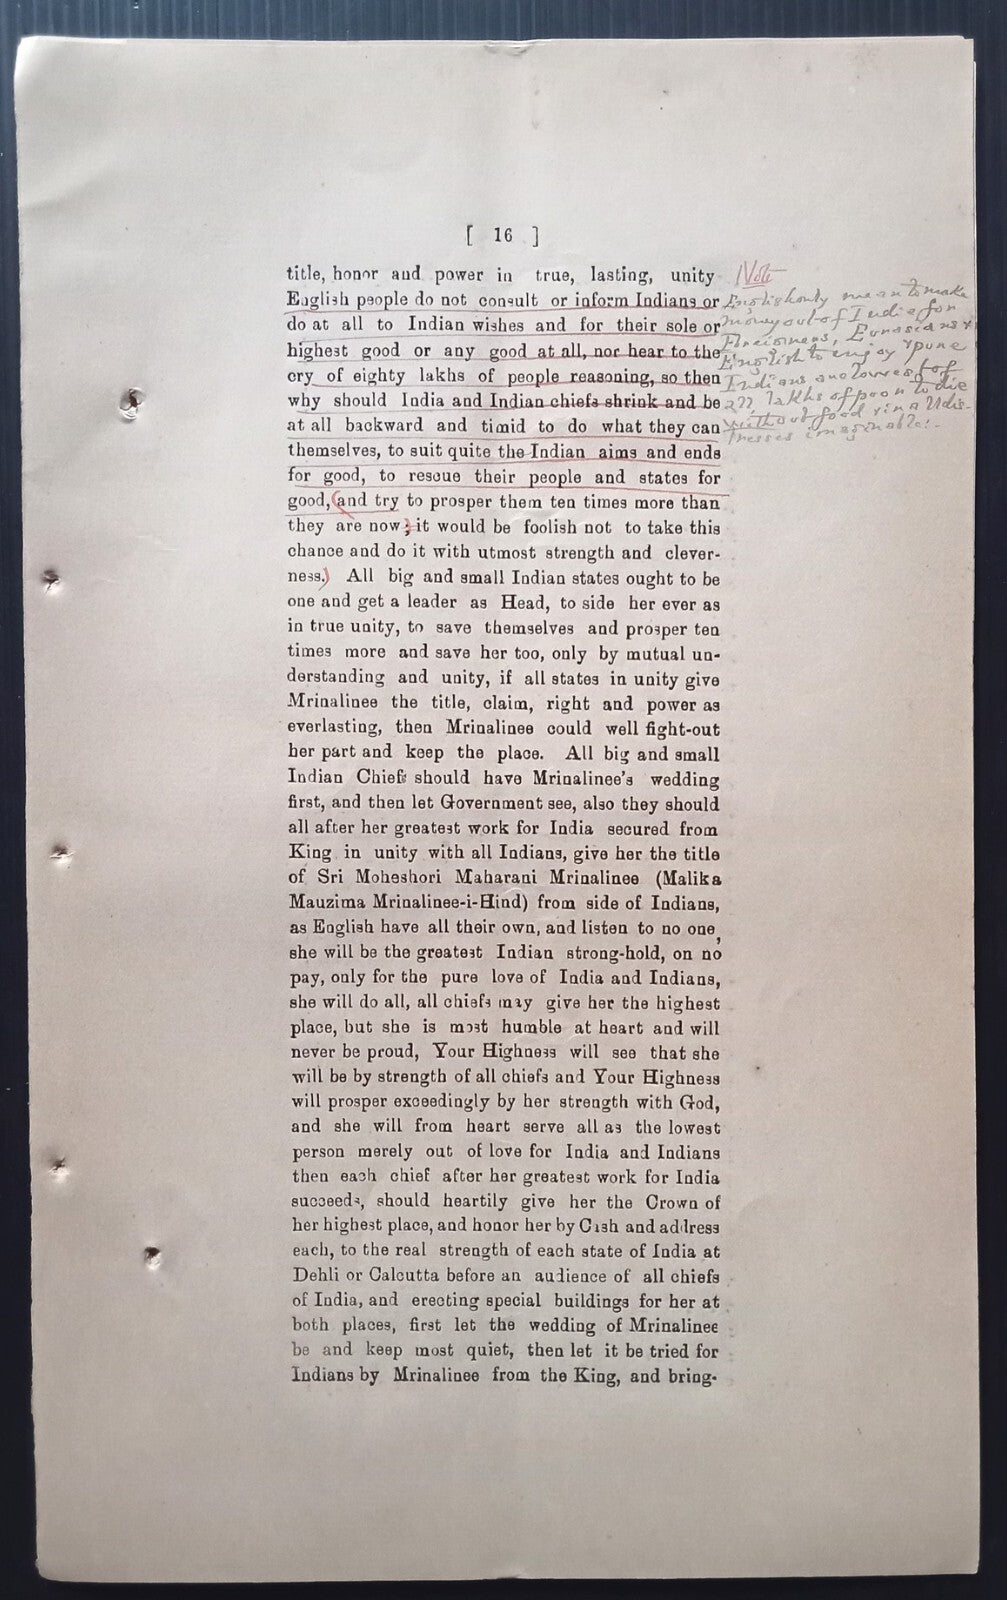 [ 16 ]
title, honor and power in true, lasting, unity
English people do not consult or inform Indians or
do at all to Indian wishes and for their sole or
highest good or any good at all, nor hear to the
cry of eighty lakhs of people reasoning, so then
why should India and Indian chiefs shrink and be
at all backward and timid to do what they can
themselves, to suit quite the Indian aims and ends
for good, to rescue their people and states for
good, (and try to prosper them ten times more than
they are now; it would be foolish not to take this
chance and do it with utmost strength and clever-
ness.) All big and small Indian states ought to be
one and get a leader as Head, to side her ever as
in true unity, to save themselves and prosper ten
times more and save her too, only by mutual un-
derstanding and unity, if all states in unity give
Mrinalinee the title, claim, right and power as
everlasting, then Mrinalinee could well fight-out
her part and keep the place. All big and small
Indian Chiefs should have Mrinalinee's wedding
first, and then let Government see, also they should
all after her greatest work for India secured from
King in unity with all Indians, give her the title
of Sri Moheshori Maharani Mrinalinee (Malika
Mauzima Mrinalinee-i-Hind) from side of Indians,
as English have all their own, and listen to no one,
she will be the greatest Indian strong-hold, on no
pay, only for the pure love of India and Indians,
she will do all, all chiefs may give her the highest
place, but she is most humble at heart and will
never be proud, Your Highness will see that she
will be by strength of all chiefs and Your Highness
will prosper exceedingly by her strength with God,
and she will from heart serve all as the lowest
person merely out of love for India and Indians
then each chief after her greatest work for India
succeeds, should heartily give her the Crown of
her highest place, and honor her by Cash and address
each, to the real strength of each state of India at
Dehli or Calcutta before an audience of all chiefs
of India, and erecting special buildings for her at
both places, first let the wedding of Mrinalinee
be and keep most quiet, then let it be tried for
Indians by Mrinalinee from the King, and bring-
Note
English only mean to make
money out of India for
Foreigners, Eurasians &
English to enjoy &
Indians and lowest of
lakhs of poor to die
without food & in a
tresses imaginable!-